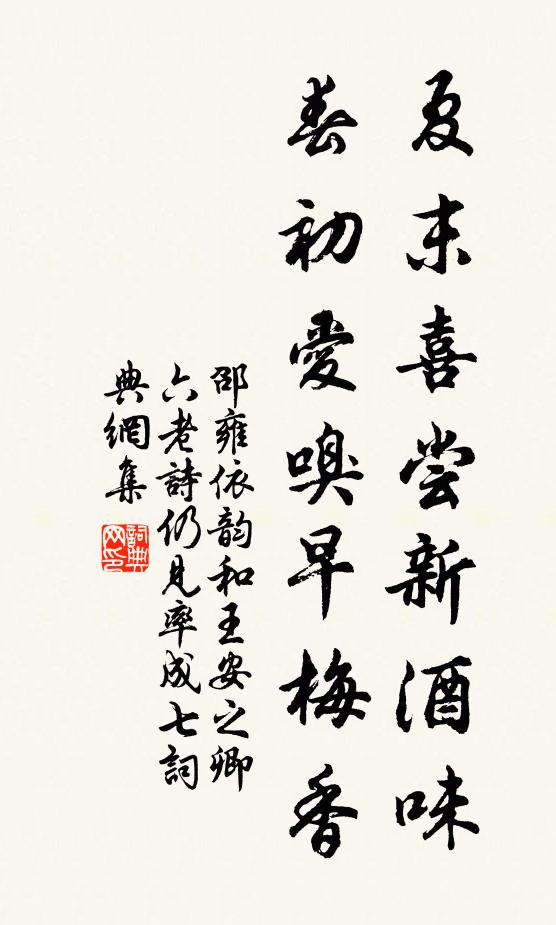 夏末喜尝新酒味
春初愛嗅早梅香
邵雍依韵和王安之卿
六老詩仍見率成七詞
典網集
詞典网印